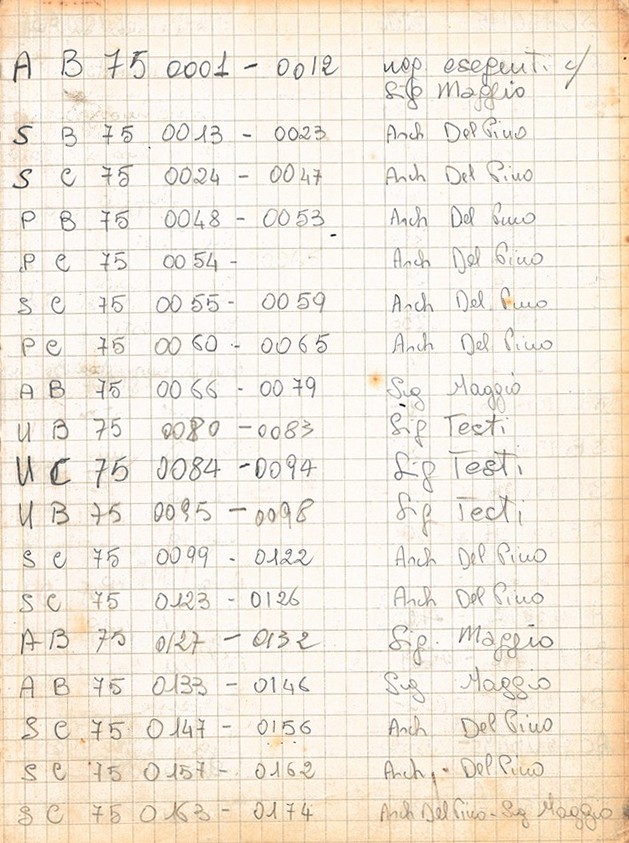 A B 75 0001 - 0012 nep eseguiti c/
Sig Maggio
S B 75 0013 - 0023 Arch Del Pino
S C 75 0024 - 0047 Arch Del Pino
P B 75 0048 - 0053 Arch Del Pino
P C 75 0054 - Arch Del Pino
S C 75 0055 - 0059 Arch Del Pino
P C 75 0060 - 0065 Arch Del Pino
A B 75 0066 - 0079 Sig Maggio
U B 75 0080 - 0083 Sig Testi
U C 75 0084 - 0094 Sig Testi
U B 75 0095 - 0098 Sig Testi
S C 75 0099 - 0122 Arch Del Pino
S C 75 0123 - 0126 Arch Del Pino
A B 75 0127 - 0132 Sig. Maggio
A B 75 0133 - 0146 Sig Maggio
S C 75 0147 - 0156 Arch Del Pino
S C 75 0157 - 0162 Arch. - Del Pino
S C 75 0163 - 0174 Arch Del Pino - Sig Maggio